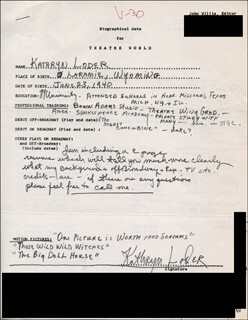 V-30
John Willis, Editor
Biographical data
for
THEATRE WORLD
NAME KATHRYN LODER
PLACE OF BIRTH LARAMIE, WYOMING
DATE OF BIRTH JUNE 23, 1940
EDUCATION University - ATTENDED SCHOOLS IN KERR. MILITARY, TEXAS
MICH., N.Y., ILL.
PROFESSIONAL TRAINING: BOWN ADAMS STUDIO - THEATRE WING GRAD. -
AMER. SHAKESPEARE ACADEMY - PRIVATE STUDY WITH
DEBUT OFF-BROADWAY (Play and date):
DEBUT ON BROADWAY (Play and date):
- date?
OTHER PLAYS ON BROADWAY
and OFF-BROADWAY:
(Include dates)
I am including a
resume which will tell you much more clearly
what my background & off Broadway & Exp. - TV etc
credits - are - if there are any questions
please feel free to call me.
MOTION PICTURES: "ONE PICTURE IS WORTH 1000 SCREAMS"
"THOSE WILD WILD WITCHES"
"THE BIG DOLL HOUSE"
Kathryn Loder
Signature